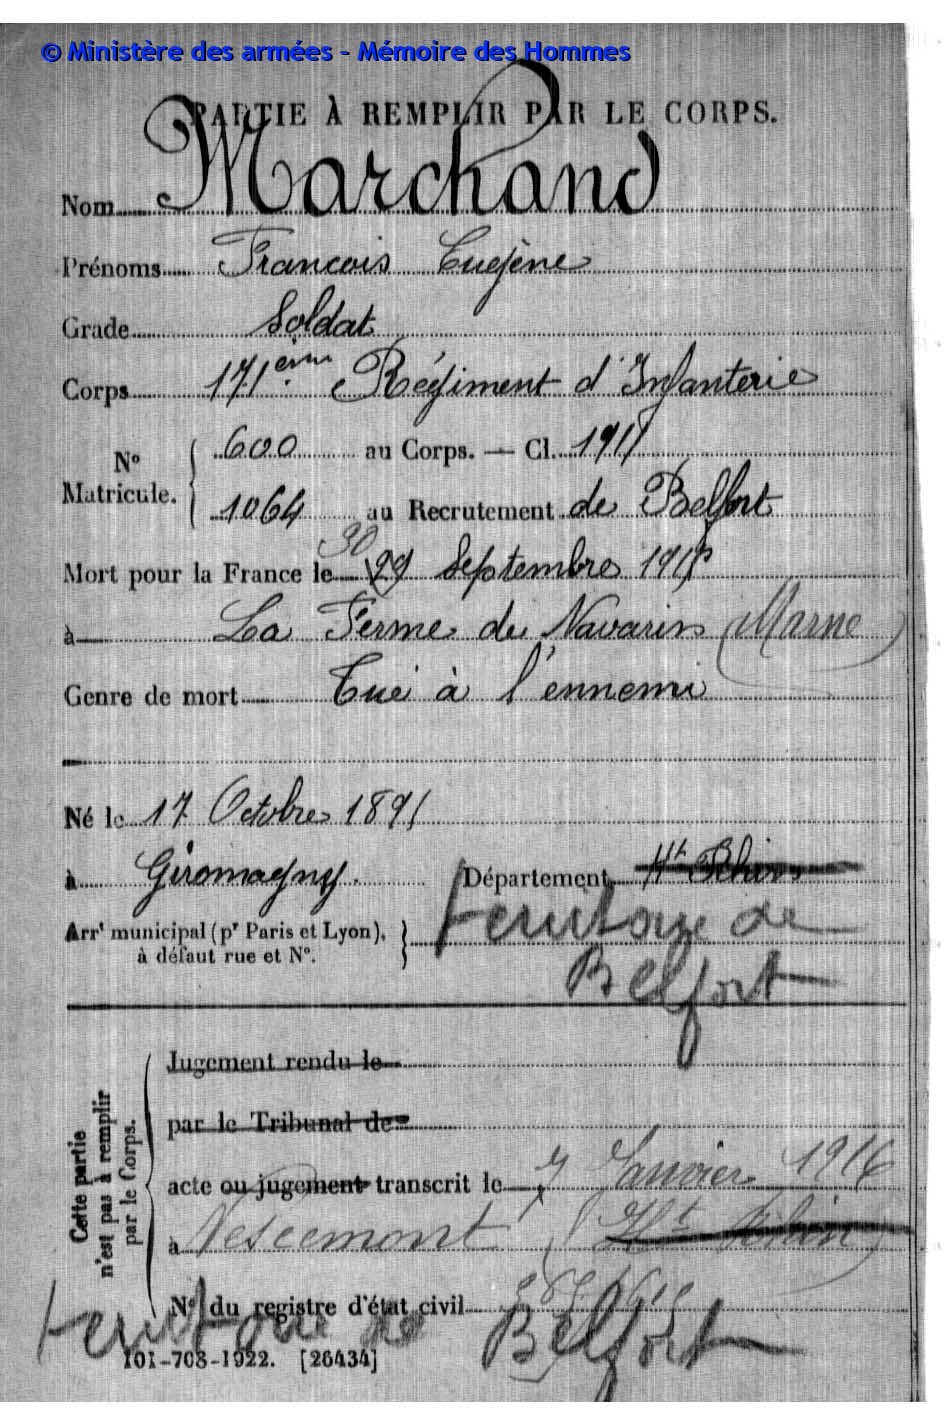 © Ministère des armées - Mémoire des Hommes
PARTIE À REMPLIR PAR LE CORPS.
Nom Marchand
Prénoms François Eugène
Grade Soldat
Corps 171ème Régiment d'Infanterie
N° Matricule. { 600 au Corps. — Cl. 1911
1064 au Recrutement de Belfort
30
Mort pour la France le 29 Septembre 1915
à La Ferme de Navarin (Marne)
Genre de mort Tué à l'ennemi
Né le 17 Octobre 1891
à Giromagny. Département Ht Rhin
Arrt municipal (pr Paris et Lyon), à défaut rue et N°. } territoire de
Belfort
Cette partie n'est pas à remplir par le Corps.
Jugement rendu le
par le Tribunal de
acte ou jugement transcrit le 7 Janvier 1916
à Vescemont (Ht Rhin)
N° du registre d'état civil
territoire de Belfort
101-708-1922. [26434]